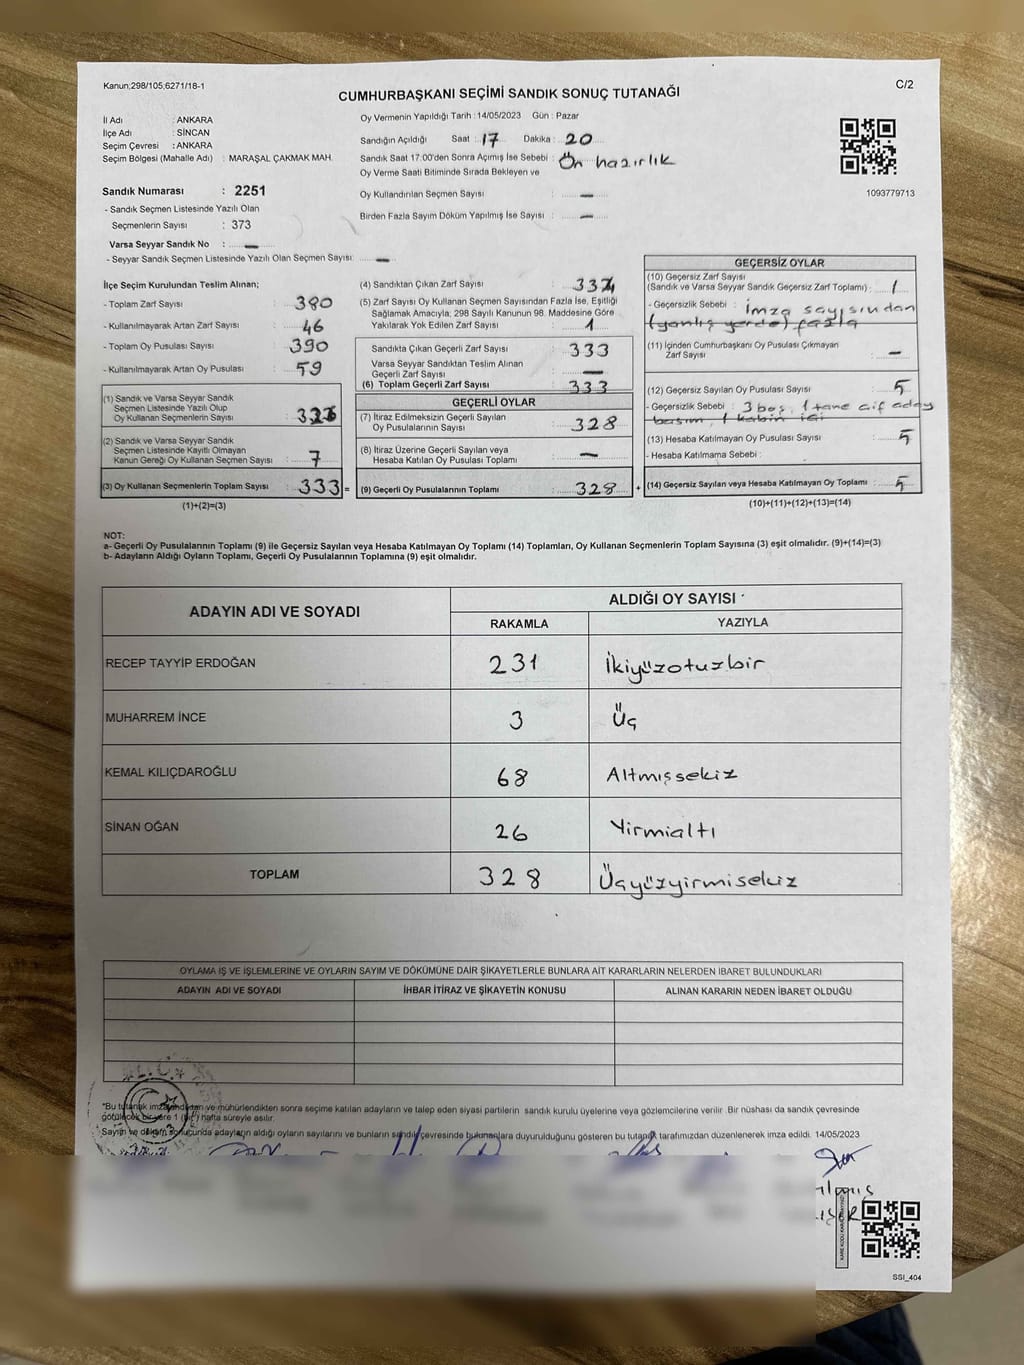 Kanun;298/105,6271/18-1
C/2
CUMHURBAŞKANI SEÇİMİ SANDIK SONUÇ TUTANAĞI
İl Adı : ANKARA
İlçe Adı : SİNCAN
Seçim Çevresi : ANKARA
Seçim Bölgesi (Mahalle Adı) : MARAŞAL ÇAKMAK MAH.
Oy Vermenin Yapıldığı Tarih : 14/05/2023 Gün : Pazar
Sandığın Açıldığı Saat : 17 Dakika : 20
Sandık Saat 17:00'den Sonra Açımış İse Sebebi : Ön hazırlık
Oy Verme Saati Bitiminde Sırada Bekleyen ve
Oy Kullandırılan Seçmen Sayısı : —
Birden Fazla Sayım Döküm Yapılmış İse Sayısı : —
1093779713
Sandık Numarası : 2251
- Sandık Seçmen Listesinde Yazılı Olan
Seçmenlerin Sayısı : 373
Varsa Seyyar Sandık No : —
- Seyyar Sandık Seçmen Listesinde Yazılı Olan Seçmen Sayısı: —
İlçe Seçim Kurulundan Teslim Alınan;
- Toplam Zarf Sayısı : 380
- Kullanılmayarak Artan Zarf Sayısı : 46
- Toplam Oy Pusulası Sayısı : 390
- Kullanılmayarak Artan Oy Pusulası : 59
(1) Sandık ve Varsa Seyyar Sandık
Seçmen Listesinde Yazılı Olup
Oy Kullanan Seçmenlerin Sayısı : 326
(2) Sandık ve Varsa Seyyar Sandık
Seçmen Listesinde Kayıtlı Olmayan
Kanun Gereği Oy Kullanan Seçmen Sayısı : 7
(3) Oy Kullanan Seçmenlerin Toplam Sayısı : 333 =
(1)+(2)=(3)
(4) Sandıktan Çıkan Zarf Sayısı : 334
(5) Zarf Sayısı Oy Kullanan Seçmen Sayısından Fazla İse, Eşitliği
Sağlamak Amacıyla, 298 Sayılı Kanunun 98. Maddesine Göre
Yakılarak Yok Edilen Zarf Sayısı : 1
Sandıkta Çıkan Geçerli Zarf Sayısı : 333
Varsa Seyyar Sandıktan Teslim Alınan
Geçerli Zarf Sayısı : —
(6) Toplam Geçerli Zarf Sayısı : 333
GEÇERLİ OYLAR
(7) İtiraz Edilmeksizin Geçerli Sayılan
Oy Pusulalarının Sayısı : 328
(8) İtiraz Üzerine Geçerli Sayılan veya
Hesaba Katılan Oy Pusulası Toplamı : —
(9) Geçerli Oy Pusulalarının Toplamı : 328 +
GEÇERSİZ OYLAR
(10) Geçersiz Zarf Sayısı
(Sandık ve Varsa Seyyar Sandık Geçersiz Zarf Toplamı) : 1
- Geçersizlik Sebebi : İmza sayısından
(yanlış yerde) fazla
(11) İçinden Cumhurbaşkanı Oy Pusulası Çıkmayan
Zarf Sayısı : —
(12) Geçersiz Sayılan Oy Pusulası Sayısı : 5
- Geçersizlik Sebebi : 3 boş, 1 tane çif aday
basım, 1 kabin içi
(13) Hesaba Katılmayan Oy Pusulası Sayısı : 5
- Hesaba Katılmama Sebebi :
(14) Geçersiz Sayılan veya Hesaba Katılmayan Oy Toplamı : 5
(10)+(11)+(12)+(13)=(14)
NOT:
a- Geçerli Oy Pusulalarının Toplamı (9) ile Geçersiz Sayılan veya Hesaba Katılmayan Oy Toplamı (14) Toplamları, Oy Kullanan Seçmenlerin Toplam Sayısına (3) eşit olmalıdır. (9)+(14)=(3)
b- Adayların Aldığı Oyların Toplamı, Geçerli Oy Pusulalarının Toplamına (9) eşit olmalıdır.
ADAYIN ADI VE SOYADI
ALDIĞI OY SAYISI
RAKAMLA YAZIYLA
RECEP TAYYİP ERDOĞAN 231 İkiyüzotuzbir
MUHARREM İNCE 3 Üç
KEMAL KILIÇDAROĞLU 68 Altmışsekiz
SİNAN OĞAN 26 Yirmialtı
TOPLAM 328 Üçyüzyirmisekiz
OYLAMA İŞ VE İŞLEMLERİNE VE OYLARIN SAYIM VE DÖKÜMÜNE DAİR ŞİKAYETLERLE BUNLARA AİT KARARLARIN NELERDEN İBARET BULUNDUKLARI
ADAYIN ADI VE SOYADI İHBAR İTİRAZ VE ŞİKAYETİN KONUSU ALINAN KARARIN NEDEN İBARET OLDUĞU
*Bu tutanak imzalandıktan ve mühürlendikten sonra seçime katılan adayların ve talep eden siyasi partilerin sandık kurulu üyelerine veya gözlemcilerine verilir .Bir nüshası da sandık çevresinde
götülecek bir yere 1 (bir) hafta süreyle asılır.
Sayım ve döküm sonucunda adayların aldığı oyların sayılarını ve bunların sandık çevresinde bulunanlara duyurulduğunu gösteren bu tutanak tarafımızdan düzenlenerek imza edildi. 14/05/2023
SSI_404